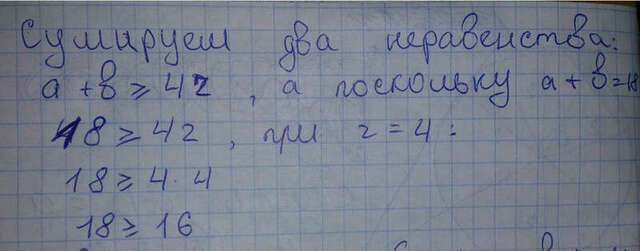 Сумируем два неравенства:
a + b ≥ 4r, а поскольку a + b = 18
18 ≥ 4r, при r = 4:
18 ≥ 4 · 4
18 ≥ 16